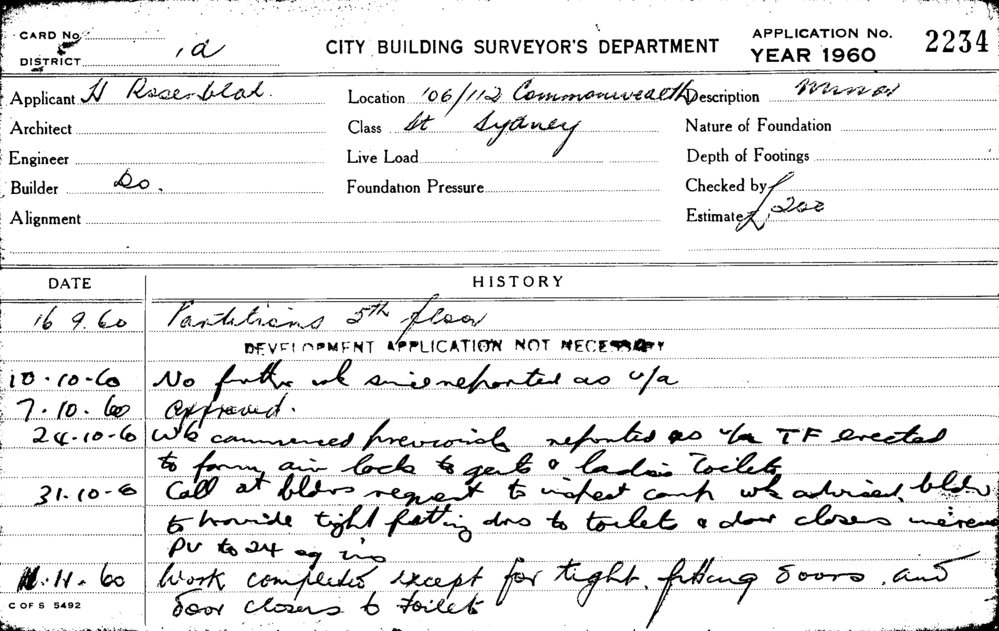 CARD No
DISTRICT
CITY BUILDING SURVEYOR'S DEPARTMENT
APPLICATION No.
YEAR 1960
2234
Applicant H Rosenblat.
Location 106/112 Commonwealth
Description Minor
Architect
Class St Sydney
Nature of Foundation
Engineer
Live Load
Depth of Footings
Builder Do.
Foundation Pressure
Checked by
Alignment
Estimate £200
DATE
HISTORY
16 9.60 Partitions 5th floor
DEVELOPMENT APPLICATION NOT NECESSARY
10-10-60 No further wk since reported as u/a
7.10.60 Approved.
24-10-60 Wk commenced previously reported as u/a TF erected
to form air lock to gents & ladies Toilets
31-10-60 Call at bldrs request to inspect comp wk advised bldr
to provide tight fitting drs to toilets & door closers
PV to 24 sq ins
11-11-60 Work completed except for tight fitting doors and
door closers to toilets
C OF S 5492